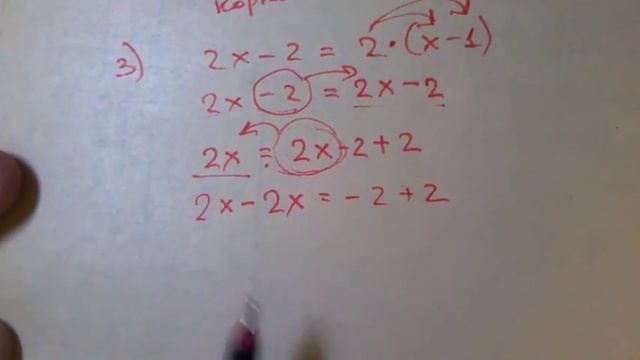 3) 2x - 2 = 2 · (x - 1)
2x - 2 = 2x - 2
2x = 2x - 2 + 2
2x - 2x = - 2 + 2